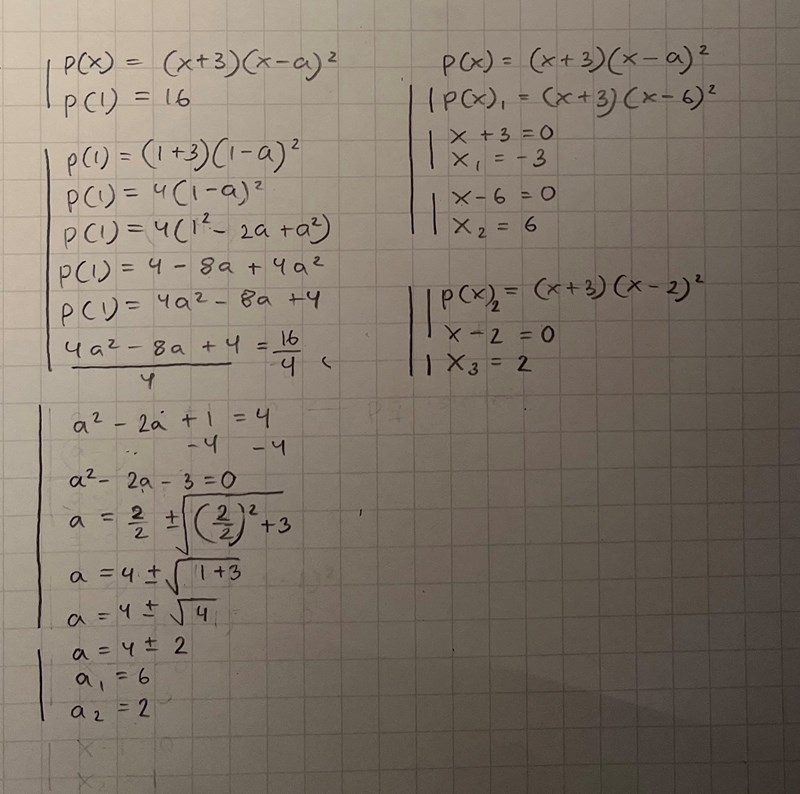 p(x) = (x+3)(x-a)²
p(1) = 16
p(1) = (1+3)(1-a)²
p(1) = 4(1-a)²
p(1) = 4(1² - 2a + a²)
p(1) = 4 - 8a + 4a²
p(1) = 4a² - 8a + 4
(4a² - 8a + 4)/4 = 16/4
a² - 2a + 1 = 4
-4 -4
a² - 2a - 3 = 0
a = 2/2 ± √((2/2)² + 3)
a = 4 ± √(1+3)
a = 4 ± √4
a = 4 ± 2
a₁ = 6
a₂ = 2
p(x) = (x+3)(x-a)²
p(x)₁ = (x+3)(x-6)²
x + 3 = 0
x₁ = -3
x - 6 = 0
x₂ = 6
p(x)₂ = (x+3)(x-2)²
x - 2 = 0
x₃ = 2